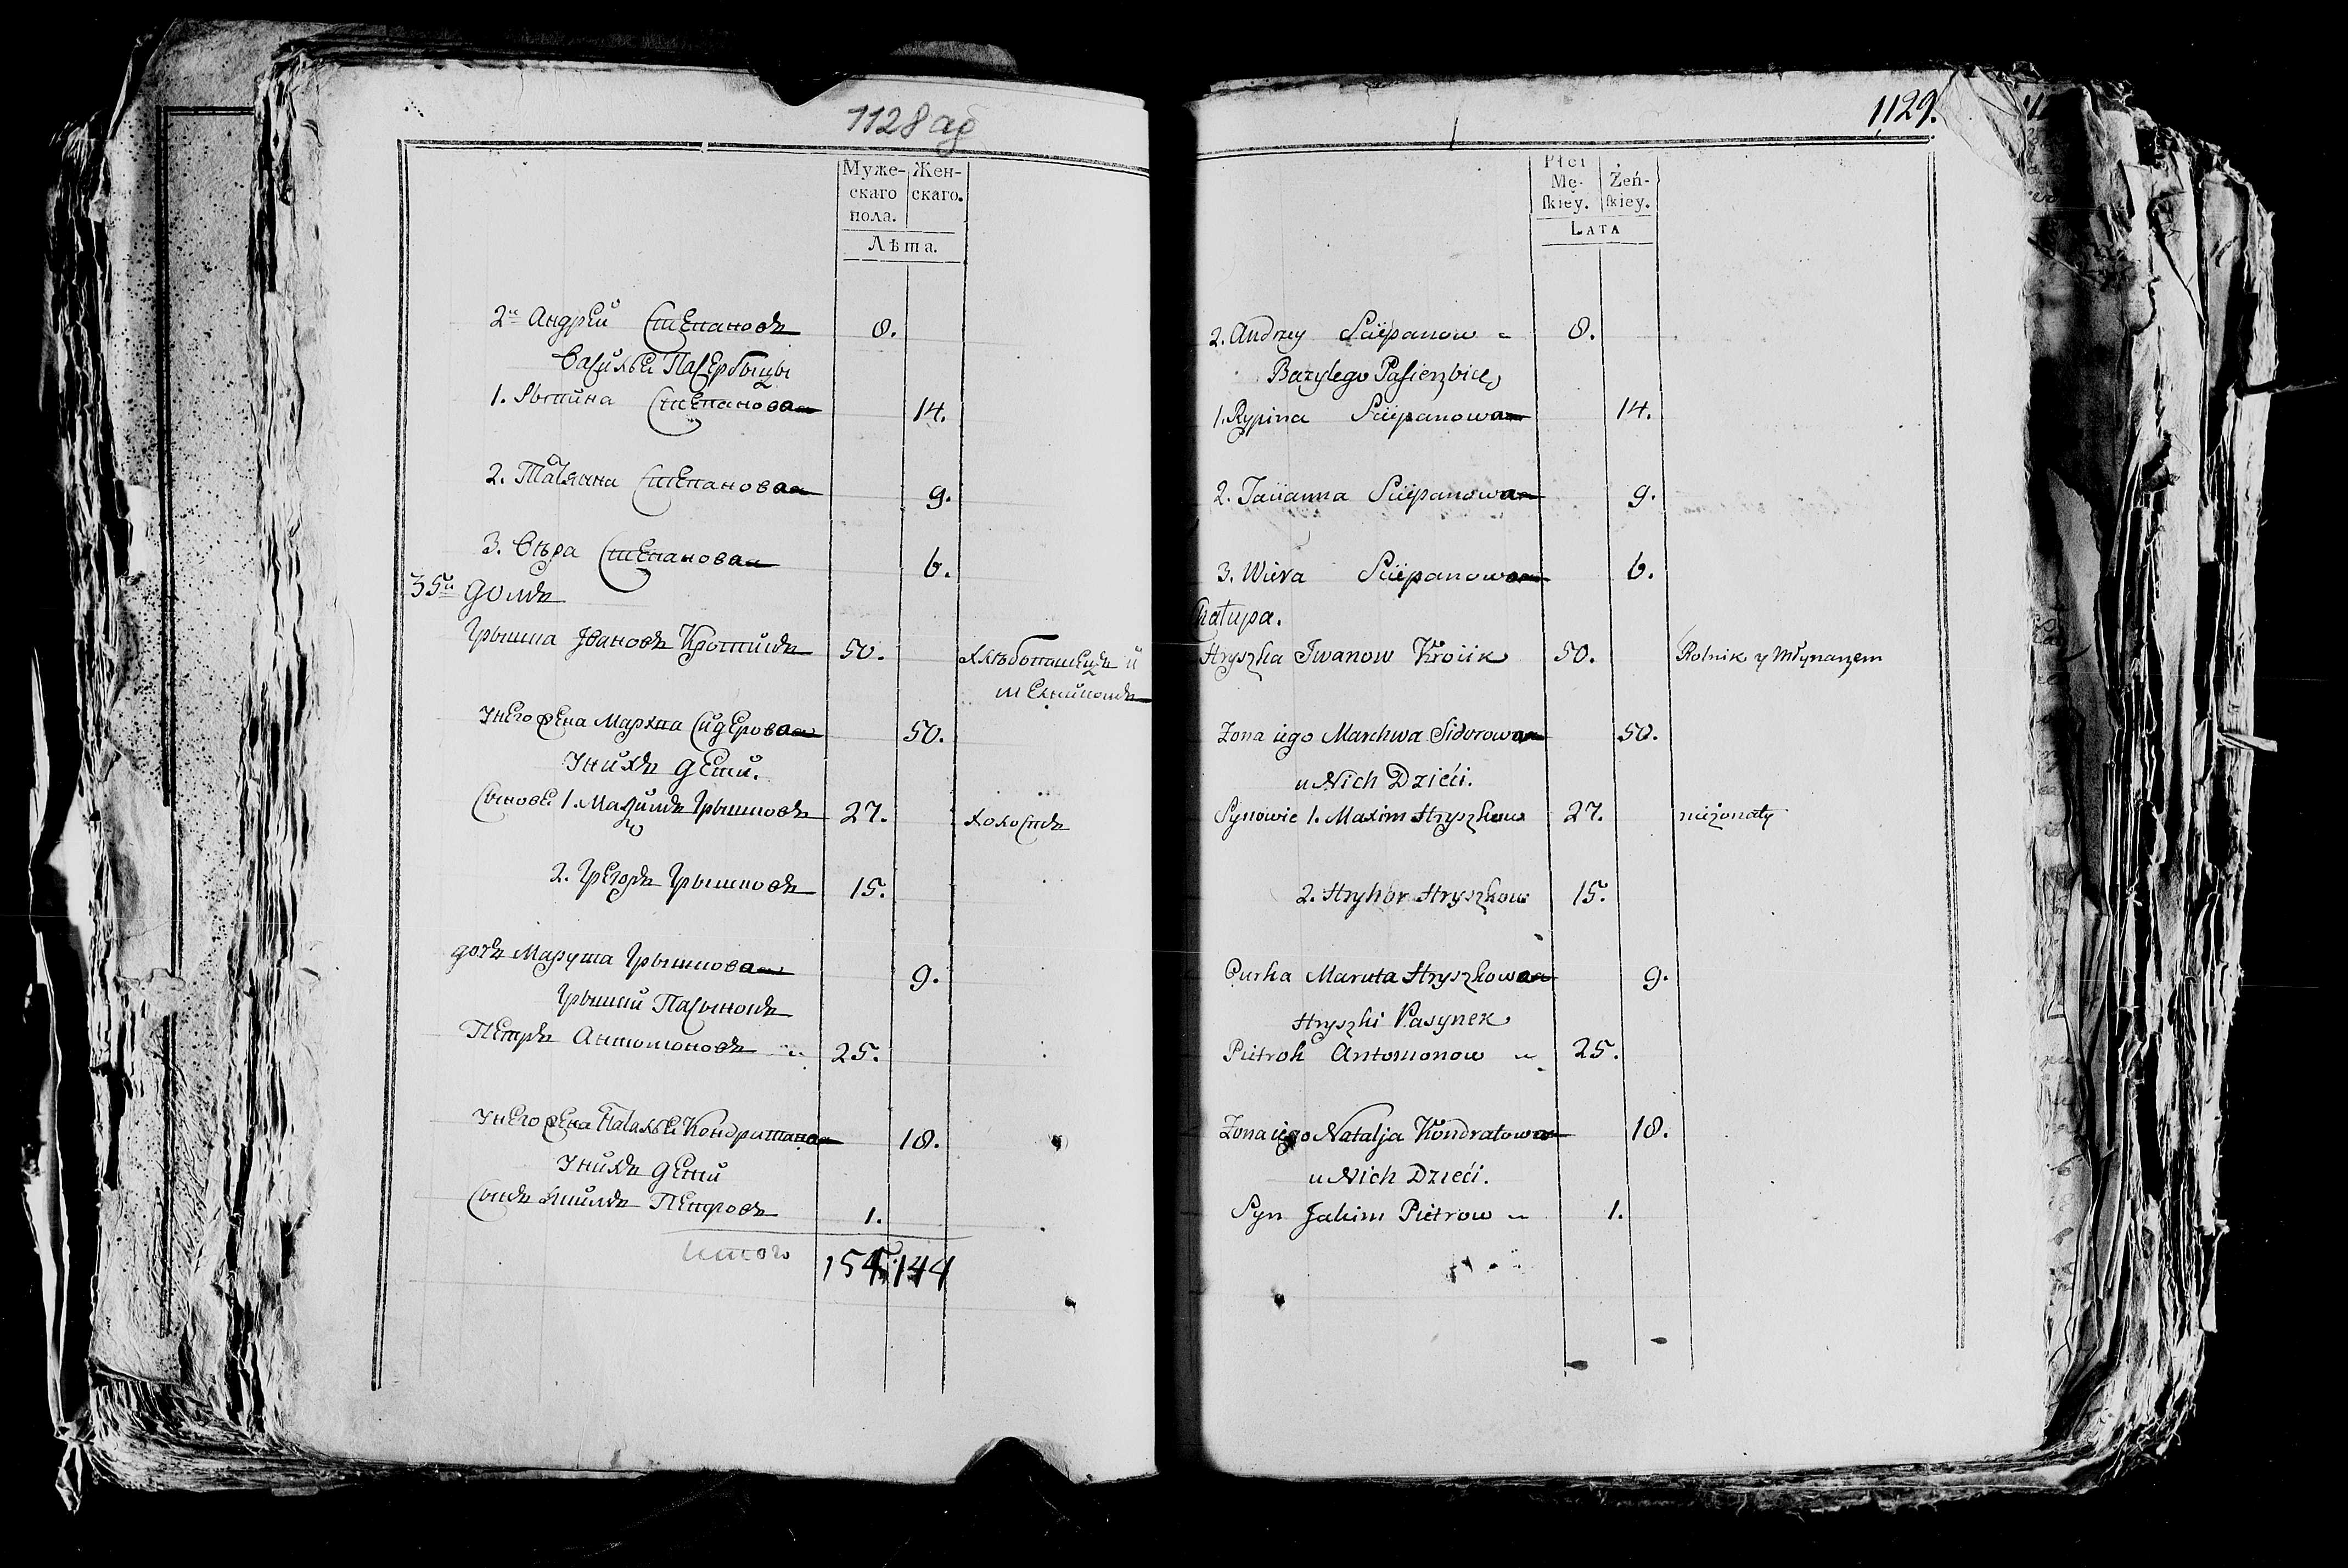 1128 об
Муже-
скаго
пола.
Жен-
скаго.
Лѣта.
2й Андрей Степановъ 8.
Василья Пасербыцы
1. Рыпина Степанова 14.
2. Татянна Степанова 9.
3. Вѣра Степанова 6.
35й домъ
Грышка Ивановъ Кротикъ 50. хлѣбопашецъ и
мельникомъ
У него жена Мархва Сидерова 50.
У нихъ дети.
Сыновя 1. Махимъ Грышковъ 27. холостъ
2. Грегоръ Грышковъ 15.
дочъ Марута Грышкова 9.
Грышки Пасынокъ
Петръ Антомоновъ 25.
У него жена Наталья 18.
У нихъ дети
Сынъ Якимъ Петровъ 1.
Итого 154 144
1129.
Płci
Mę-
ſkiey.
Żeń-
ſkiey.
LATA
2. Andrzey Sciepanow 8.
Bazylego Pasierzbicy
1. Rypina Sciepanowa 14.
2. Tacianna Sciepanowa 9.
3. Wiera Sciepanowa 6.
Chałupa.
Hryszka Iwanow Krocik 50. Rolnik y Młynarzem
Zona iego Marchwa Sidorowa 50.
u Nich Dzieći.
Synowie 1. Maxim Hryszkow 27. nieżonaty
2. Hryhor Hryszkow 15.
Curka Maruta Hryszkowa 9.
Hryszki Pasynek
Pietroh Antomonow 25.
Zona iego Natalja Kondratowa 18.
u Nich Dzieći.
Syn Jakim Pietrow 1.